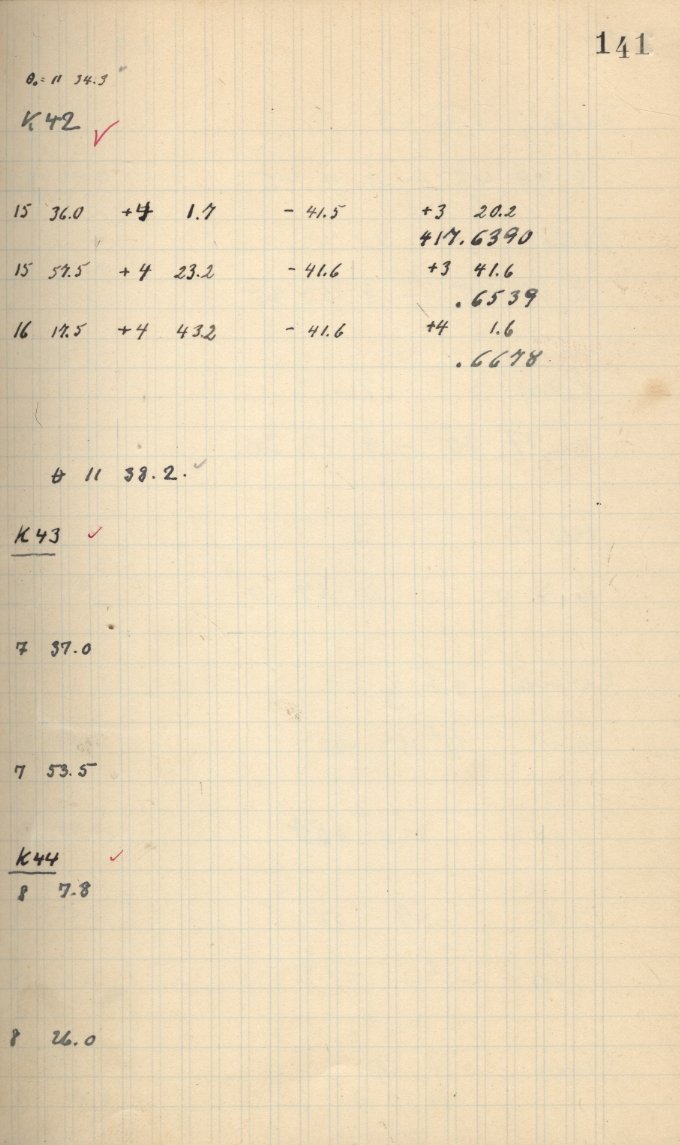 141
θ₀ = 11 34.3
K 42 ✓
15 36.0 +4 1.7 - 41.5 +3 20.2
417.6390
15 57.5 +4 23.2 - 41.6 +3 41.6
.6539
16 17.5 +4 43.2 - 41.6 +4 1.6
.6678
θ 11 38.2. ✓
K 43 ✓
7 37.0
7 53.5
K 44 ✓
8 7.8
8 26.0